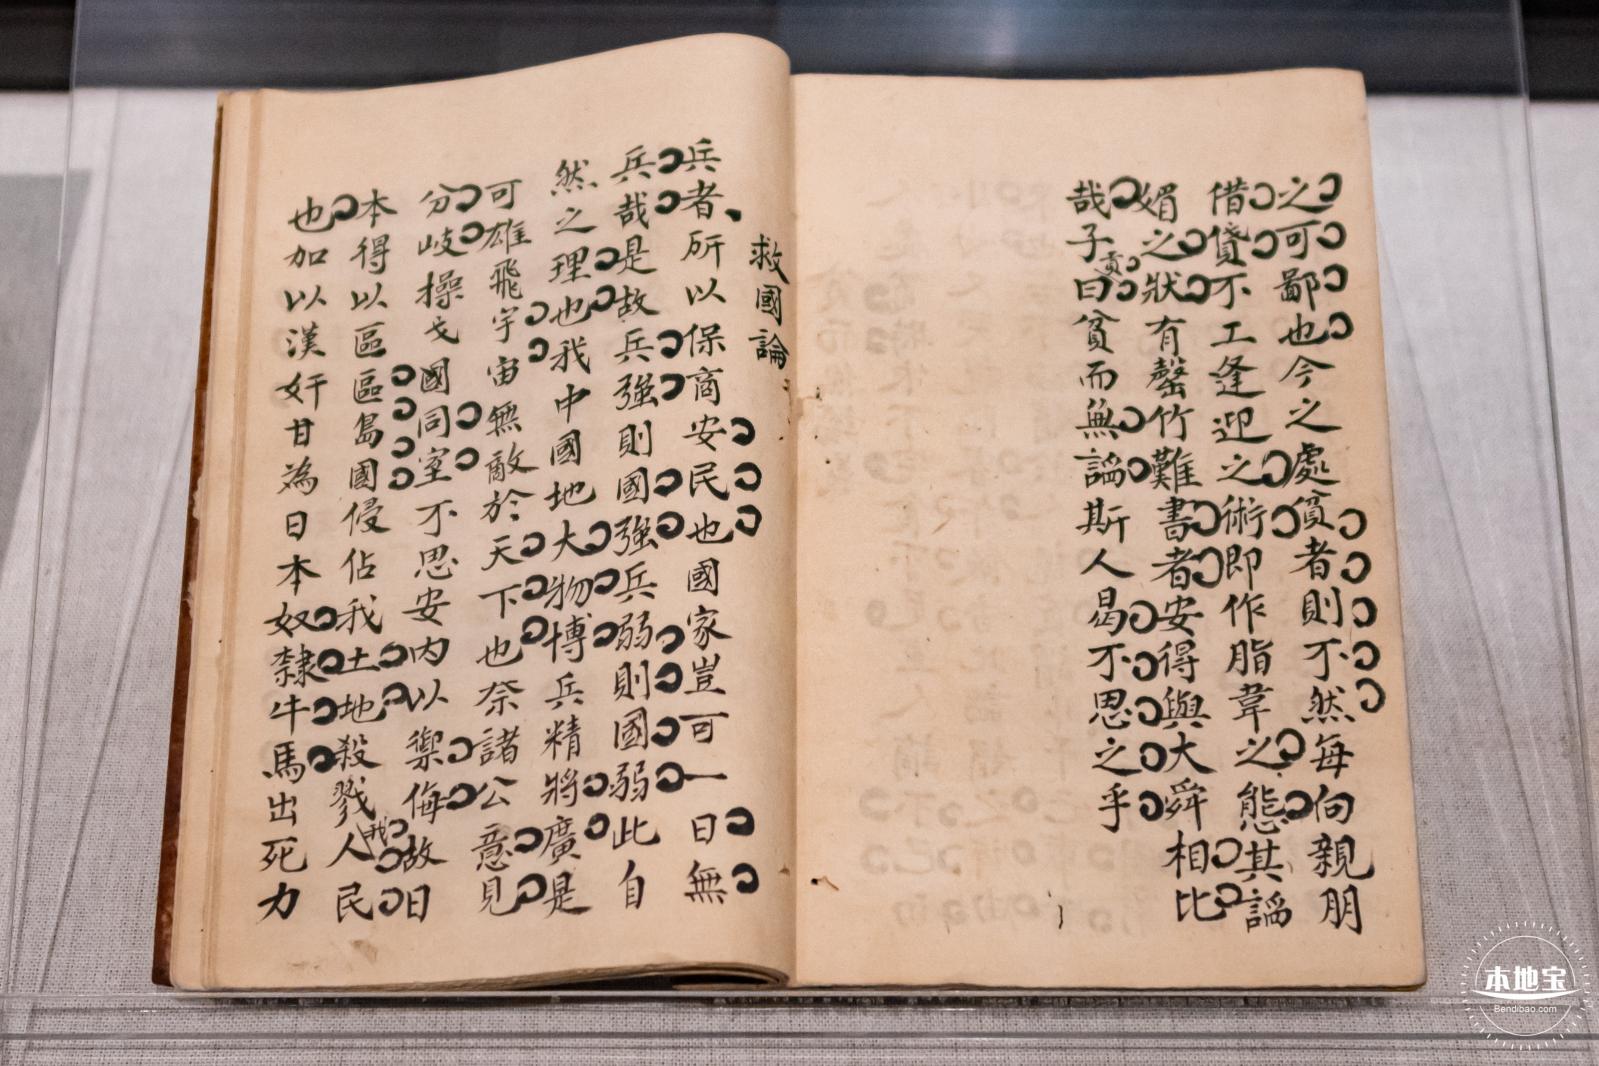 之可鄙也今之處貧者則不然每向親朋
借貸不工逢迎之術即作脂韋之態其謟
媚之狀有罄竹難書者安得與大舜相比
哉子貢曰貧而無謟斯人曷不思之乎
救國論
兵者所以保商安民也國家豈可一日無
兵哉是故兵強則國強兵弱則國弱此自
然之理也我中國地大物博兵精將廣是
可雄飛宇宙無敵於天下也奈諸公意見
分岐操戈同室不思安內以禦侮故日
本得以區區島國侵佔我土地殺戮我人民
也加以漢奸甘為日本奴隸牛馬出死力
本地宝
Bendibao.com